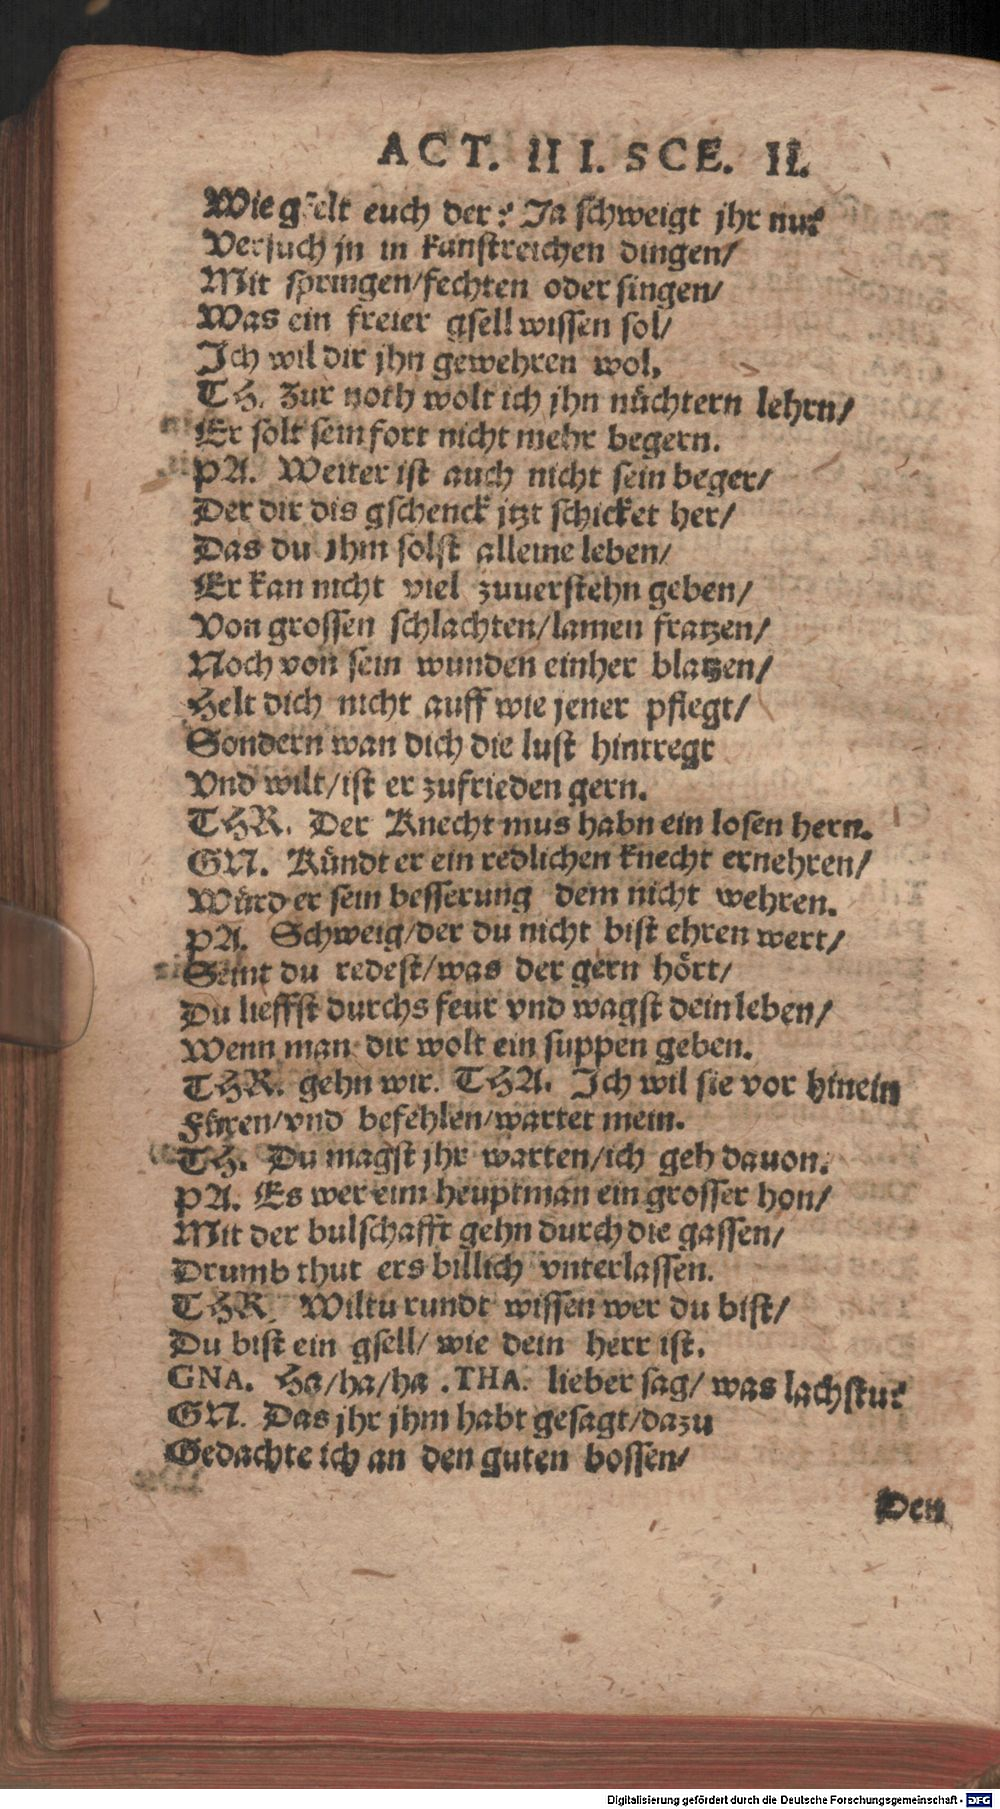 ACT. III. SCE. II.
Wie gfelt euch der? Ja schweigt jhr nu?
Versuch jn in kunstreichen dingen/
Mit springen/fechten oder singen/
Was ein freier gsell wissen sol/
Ich wil dir jhn gewehren wol.
TH. Zur noth wolt ich jhn nüchtern lehrn/
Er solt sein fort nicht mehr begern.
PA. Weiter ist auch nicht sein beger/
Der dir dis gschenck jtzt schicket her/
Das du jhm solst alleine leben/
Er kan nicht viel zuuerstehn geben/
Von grossen schlachten/lamen fratzen/
Noch von sein wunden einher blatzen/
Helt dich nicht auff wie jener pflegt/
Sondern wan dich die lust hintregt
Vnd wilt/ist er zufrieden gern.
THR. Der Knecht mus habn ein losen hern.
GN. Kündt er ein redlichen knecht ernehren/
Würd er sein besserung dem nicht wehren.
PA. Schweig/der du nicht bist ehren wert/
Seint du redest/was der gern hört/
Du lieffst durchs feur vnd wagst dein leben/
Wenn man dir wolt ein suppen geben.
THR. gehn wir. THA. Ich wil sie vor hinein
Füren/vnd befehlen/wartet mein.
TH. Du magst jhr warten/ich geh dauon.
PA. Es wer eim heuptman ein grosser hon/
Mit der bulschafft gehn durch die gassen/
Drumb thut ers billich vnterlassen.
THR. Wiltu rundt wissen wer du bist/
Du bist ein gsell/ wie dein herr ist.
GNA. Ha/ha/ha. THA. lieber sag/ was lachstu?
GN. Das jhr jhm habt gesagt/dazu
Gedachte ich an den guten bossen/
Den
Digitalisierung gefördert durch die Deutsche Forschungsgemeinschaft - DFG